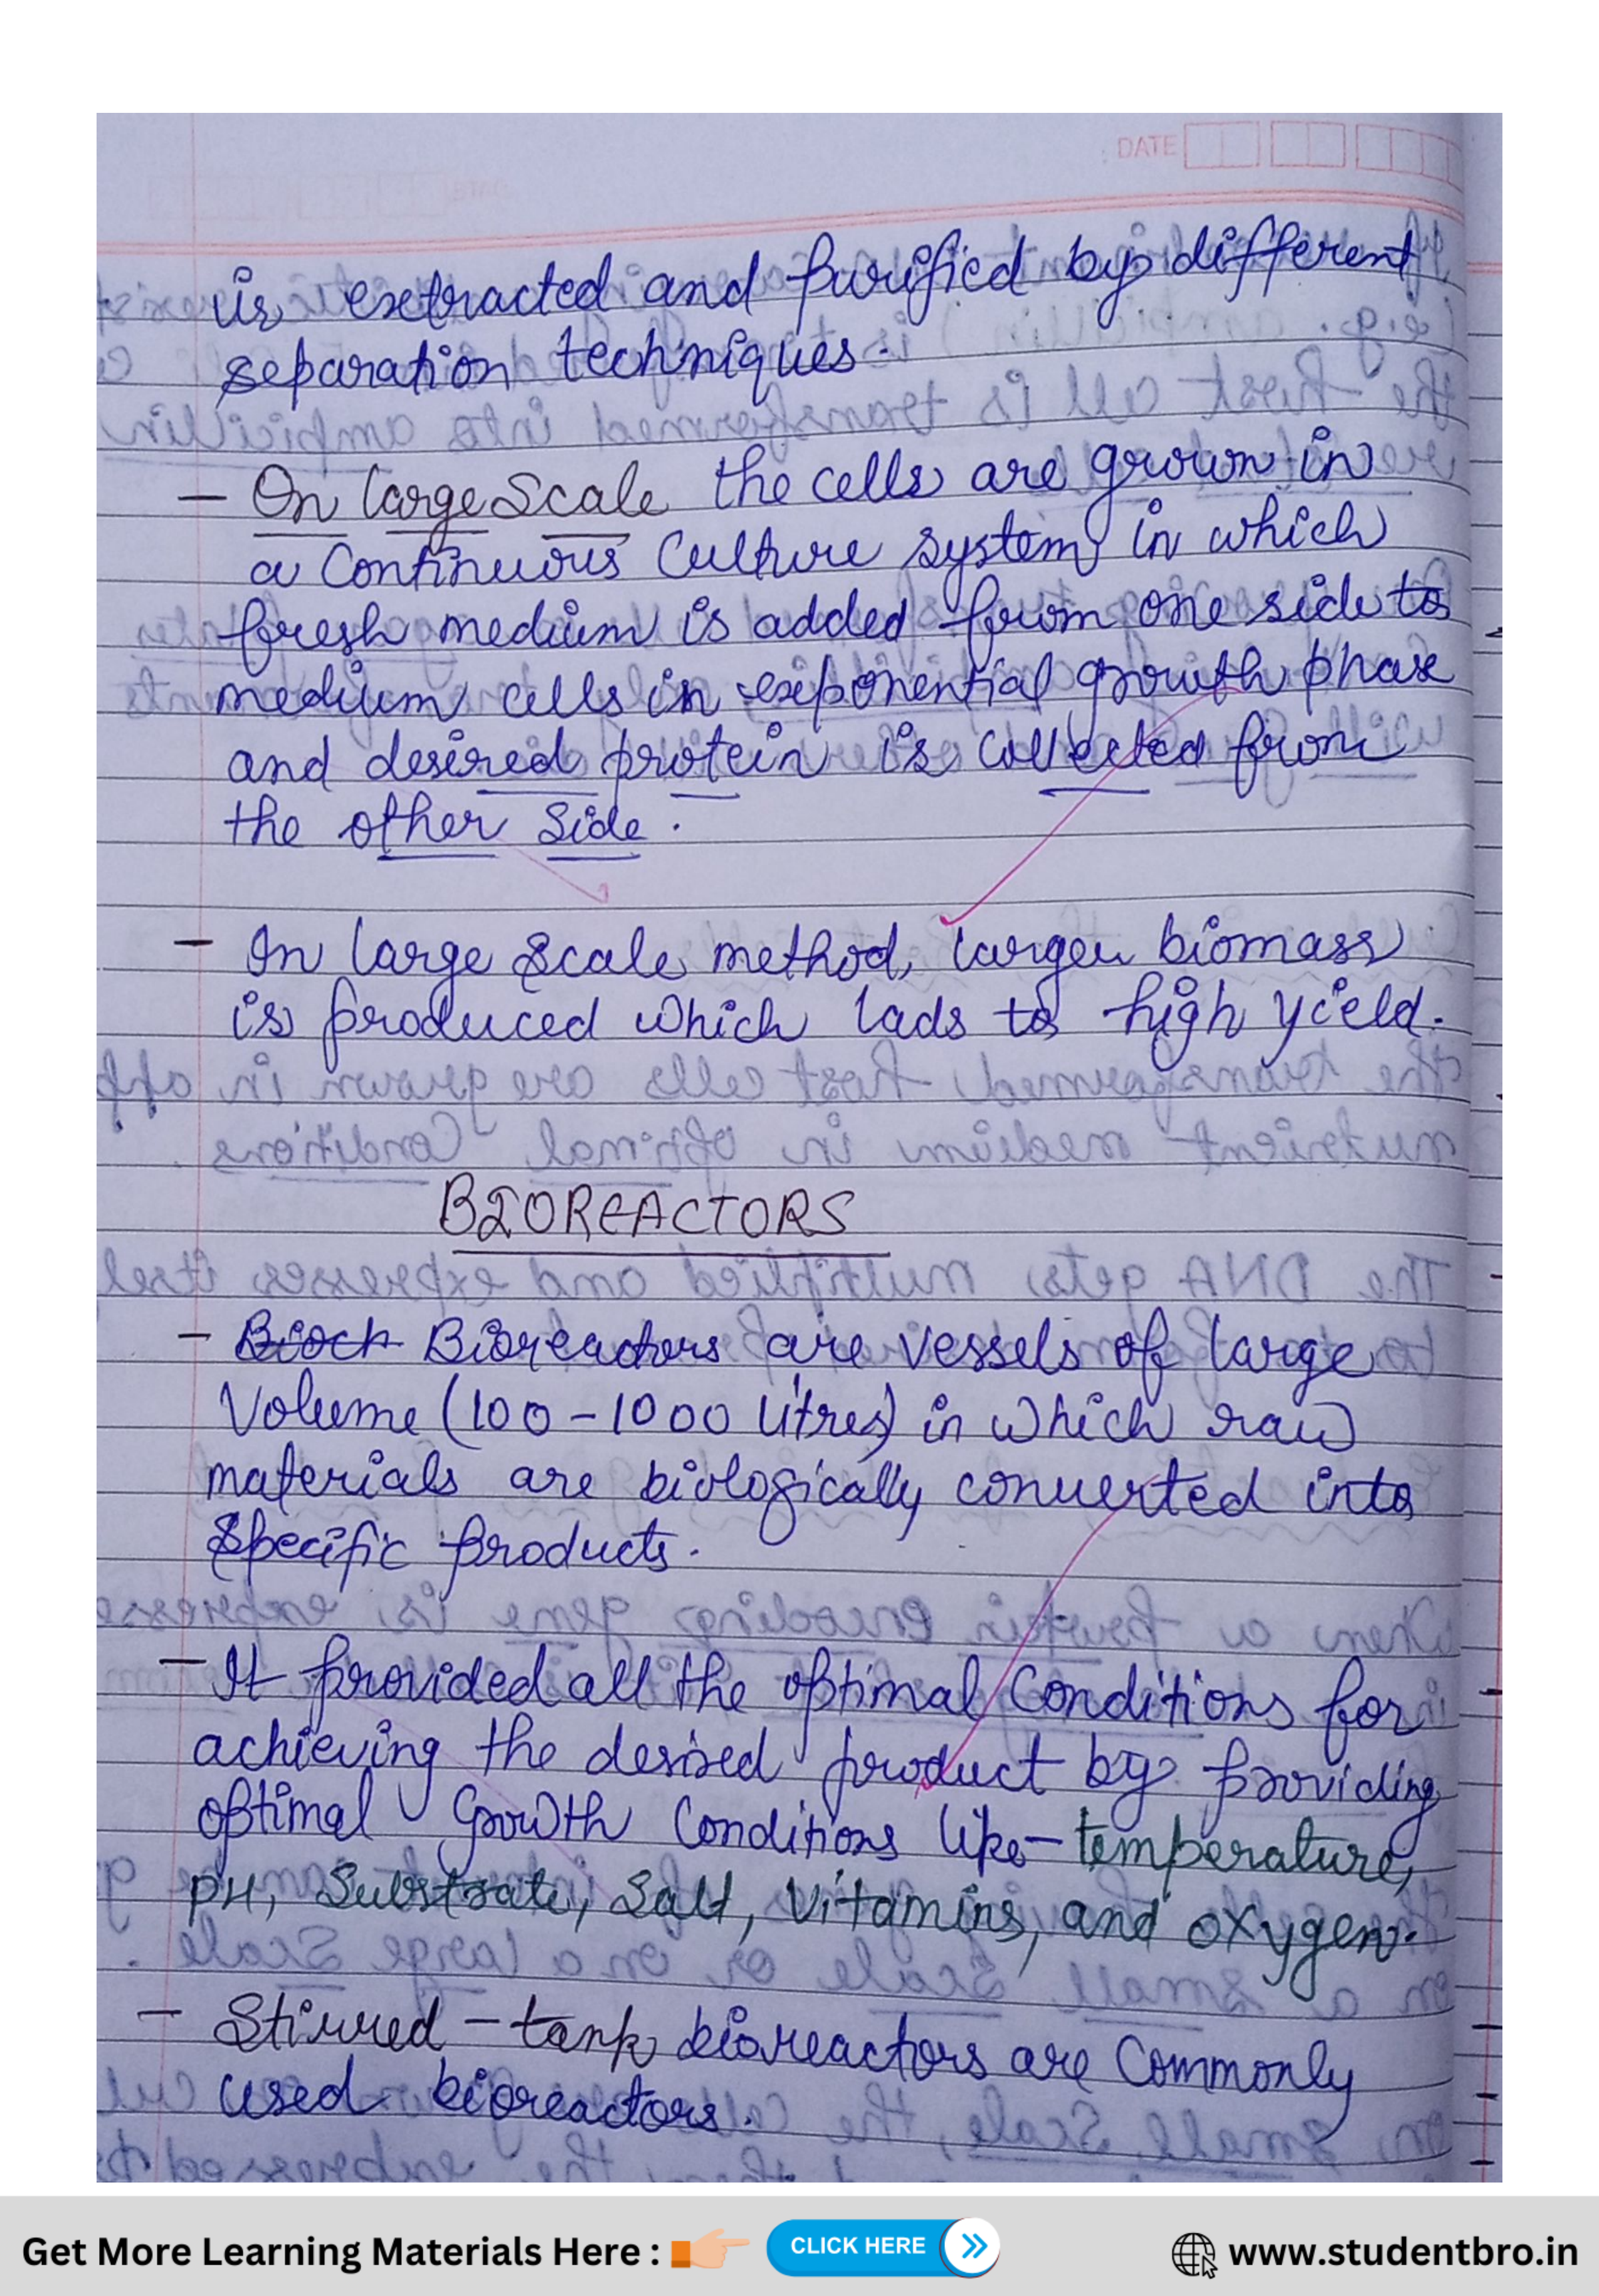 DATE
is extracted and purified by different
separation techniques.
– On large Scale the cells are grown in
a Continuous Culture system in which
fresh medium is added from one side to
medium cells in exponential growth phase
and desired protein is collected from
the other side.
– In large scale method, larger biomass
is produced which lads to high yield.
BIOREACTORS
– Bioch Bioreactors are vessels of large
Volume (100 – 1000 litres) in which raw
materials are biologically converted into
specific products.
– It provided all the optimal Conditions for
achieving the desired product by providing
optimal Growth Conditions like – temperature,
pH, Substrate, Salt, Vitamins, and oxygen.
– Stirred – tank bioreactors are Commonly
used bioreactors.
Get More Learning Materials Here : CLICK HERE www.studentbro.in